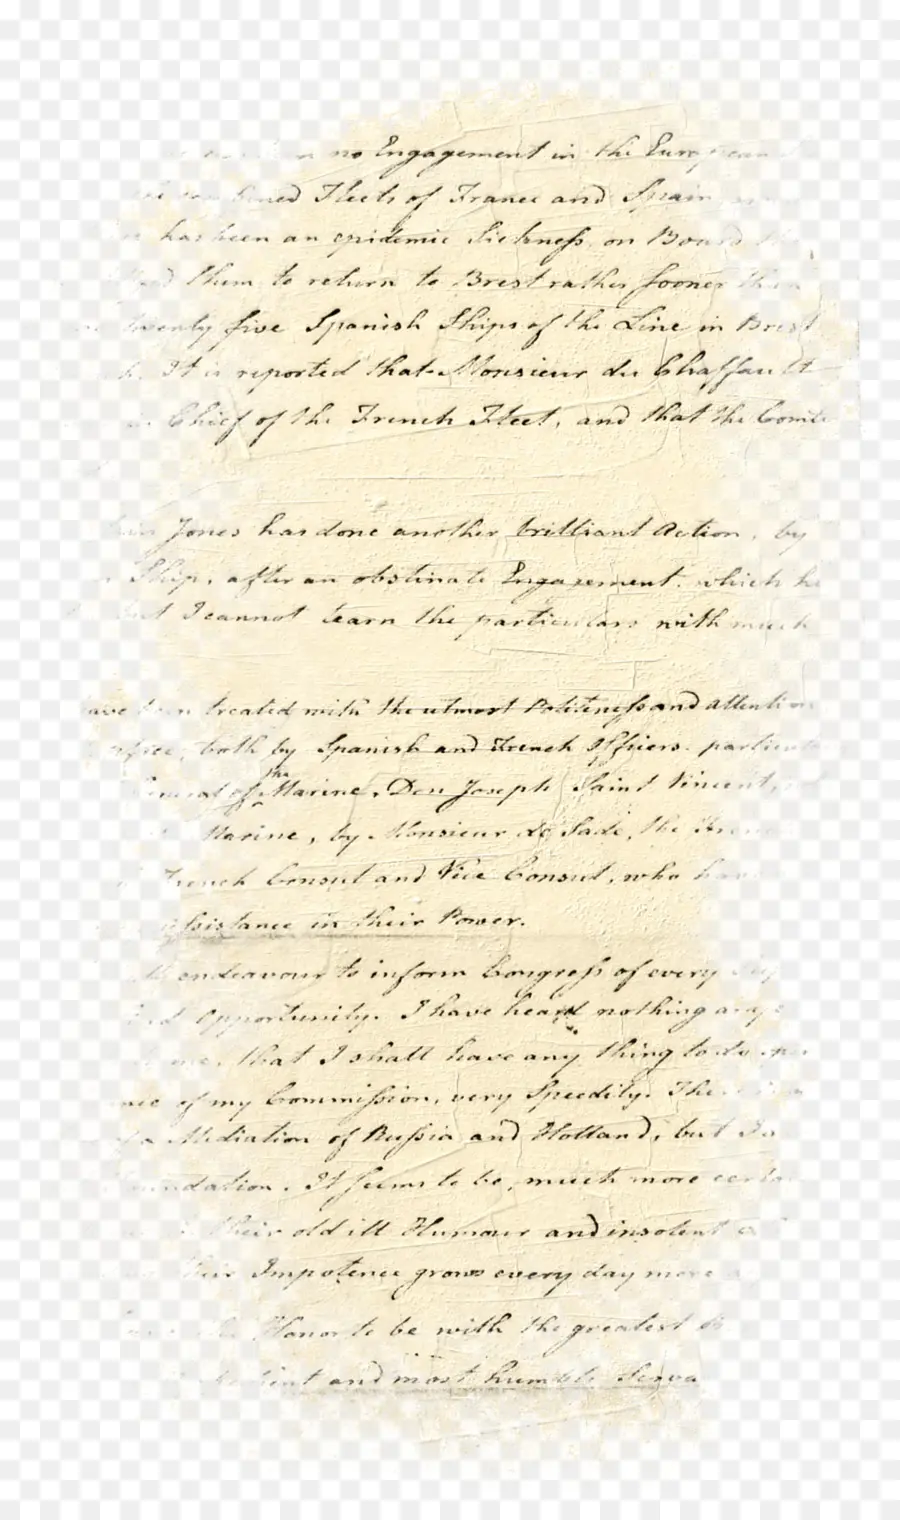 no Engagement in the European
Fleets of France and Spain
has been an epidemic Sickness, on Board
them to return to Brest rather sooner than
twenty five Spanish Ships of the Line in Brest
It is reported that Monsieur du Chaffault
Chief of the French Fleet, and that the Comte
Jones has done another brilliant Action, by
Ship, after an obstinate Engagement. which he
but I cannot learn the particulars with much
treated with the utmost Politeness and attention
both by Spanish and French Officers. particu
General of the Marine, Don Joseph Saint Vincent,
Marine, by Monsieur de Sade, the French
French Consul and Vice Consul, who have
assistance in their Power.
endeavour to inform Congress of every
Opportunity. I have heard nothing any
that I shall have any thing to do
of my Commission, very Speedily. There is
of a Mediation of Russia and Holland, but
It seems to be, much more certain
their old ill Humour and insolent
their Impotence grows every day more
Honor to be with the greatest
and most humble Serva